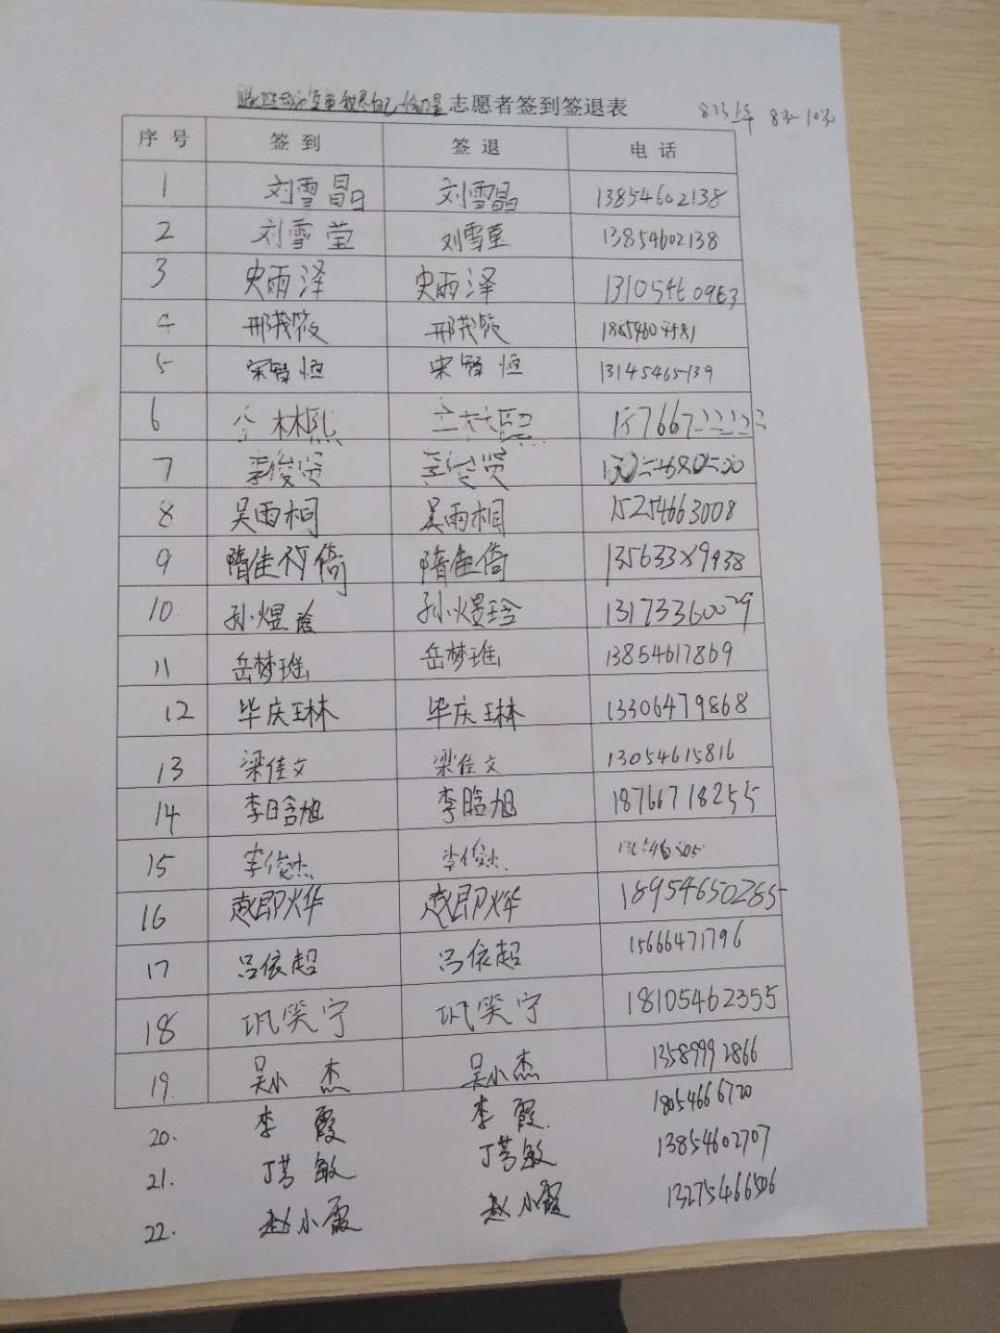 志愿者签到签退表
序号 签到 签退 电话
1 刘雪晶 刘雪晶 13854602138
2 刘雪莹 刘雪莹 13854602138
3 史雨泽 史雨泽 13105460963
4 邢茂筱 邢茂筱
5 宋智恒 宋智恒 13145465139
6 林熙
7 李俊贤 李俊贤
8 吴雨桐 吴雨桐 15254663008
9 隋佳倚 隋佳倚
10. 孙煜晗 孙煜晗 13173360029
11 岳梦琟 岳梦琟 13854617869
12 毕庆琳 毕庆琳 13306479868
13 梁佳文 梁佳文 13054615816
14 李晗旭 李晗旭 18766718255
15 李俊杰 李俊杰
16 赵即烨 赵即烨 18954650285
17 吕依超 吕依超 15666471796
18 巩笑宁 巩笑宁 18105462355
19. 吴小杰 吴小杰 13589992866
20. 李霞 李霞. 18054666720
21. 丁芳敏 丁芳敏 13854602707
22. 赵小霞 赵小霞 13275466506